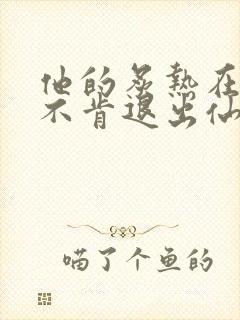 他的炙热在
不肯退出仙
喵了个鱼的